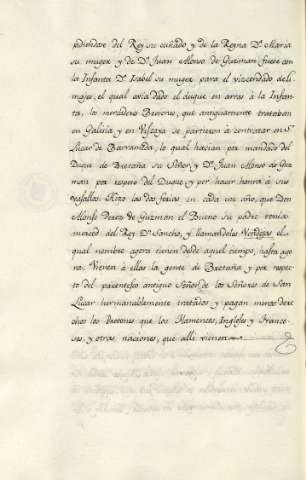 pidiendose del Rey su cuñado y de la Reyna Dª Maria
su muger y de Dⁿ Juan Alonso de Guzman fuese con
la Infanta Dª Isabel su muger para el vizcondado de Li
moges, el qual avia dado el duque en arras à la Infan
ta, los mercaderes Bretones, que antiguamente trataban
en Galicia y en Viscaya se partieron à contratar en Sⁿ
Lucar de Barrameda, lo qual hacian por mandado del
Duque de Bretaña su Señor, y Dⁿ Juan Alonso de Guz
man por respeto del Duque, y por hacer honra à sus
vasallos hizo las dos ferias en cada un año, que Don
Alonso Perez de Guzman el Bueno su padre tenia
merced del Rey Dⁿ Sancho, y llamandolas Vendejas el
qual nombre agora tienen desde aquel tiempo, hasta ago
ra: Vienen à ellas la gente de Bretaña y por respec
to del parentesco antiguo Señor de los Señores de San
Lucar humanablemente tratados y pagan menos dere
chos los Bretones que los Flamencos, Ingleses y France
ses, y otras naciones, que alli vienen